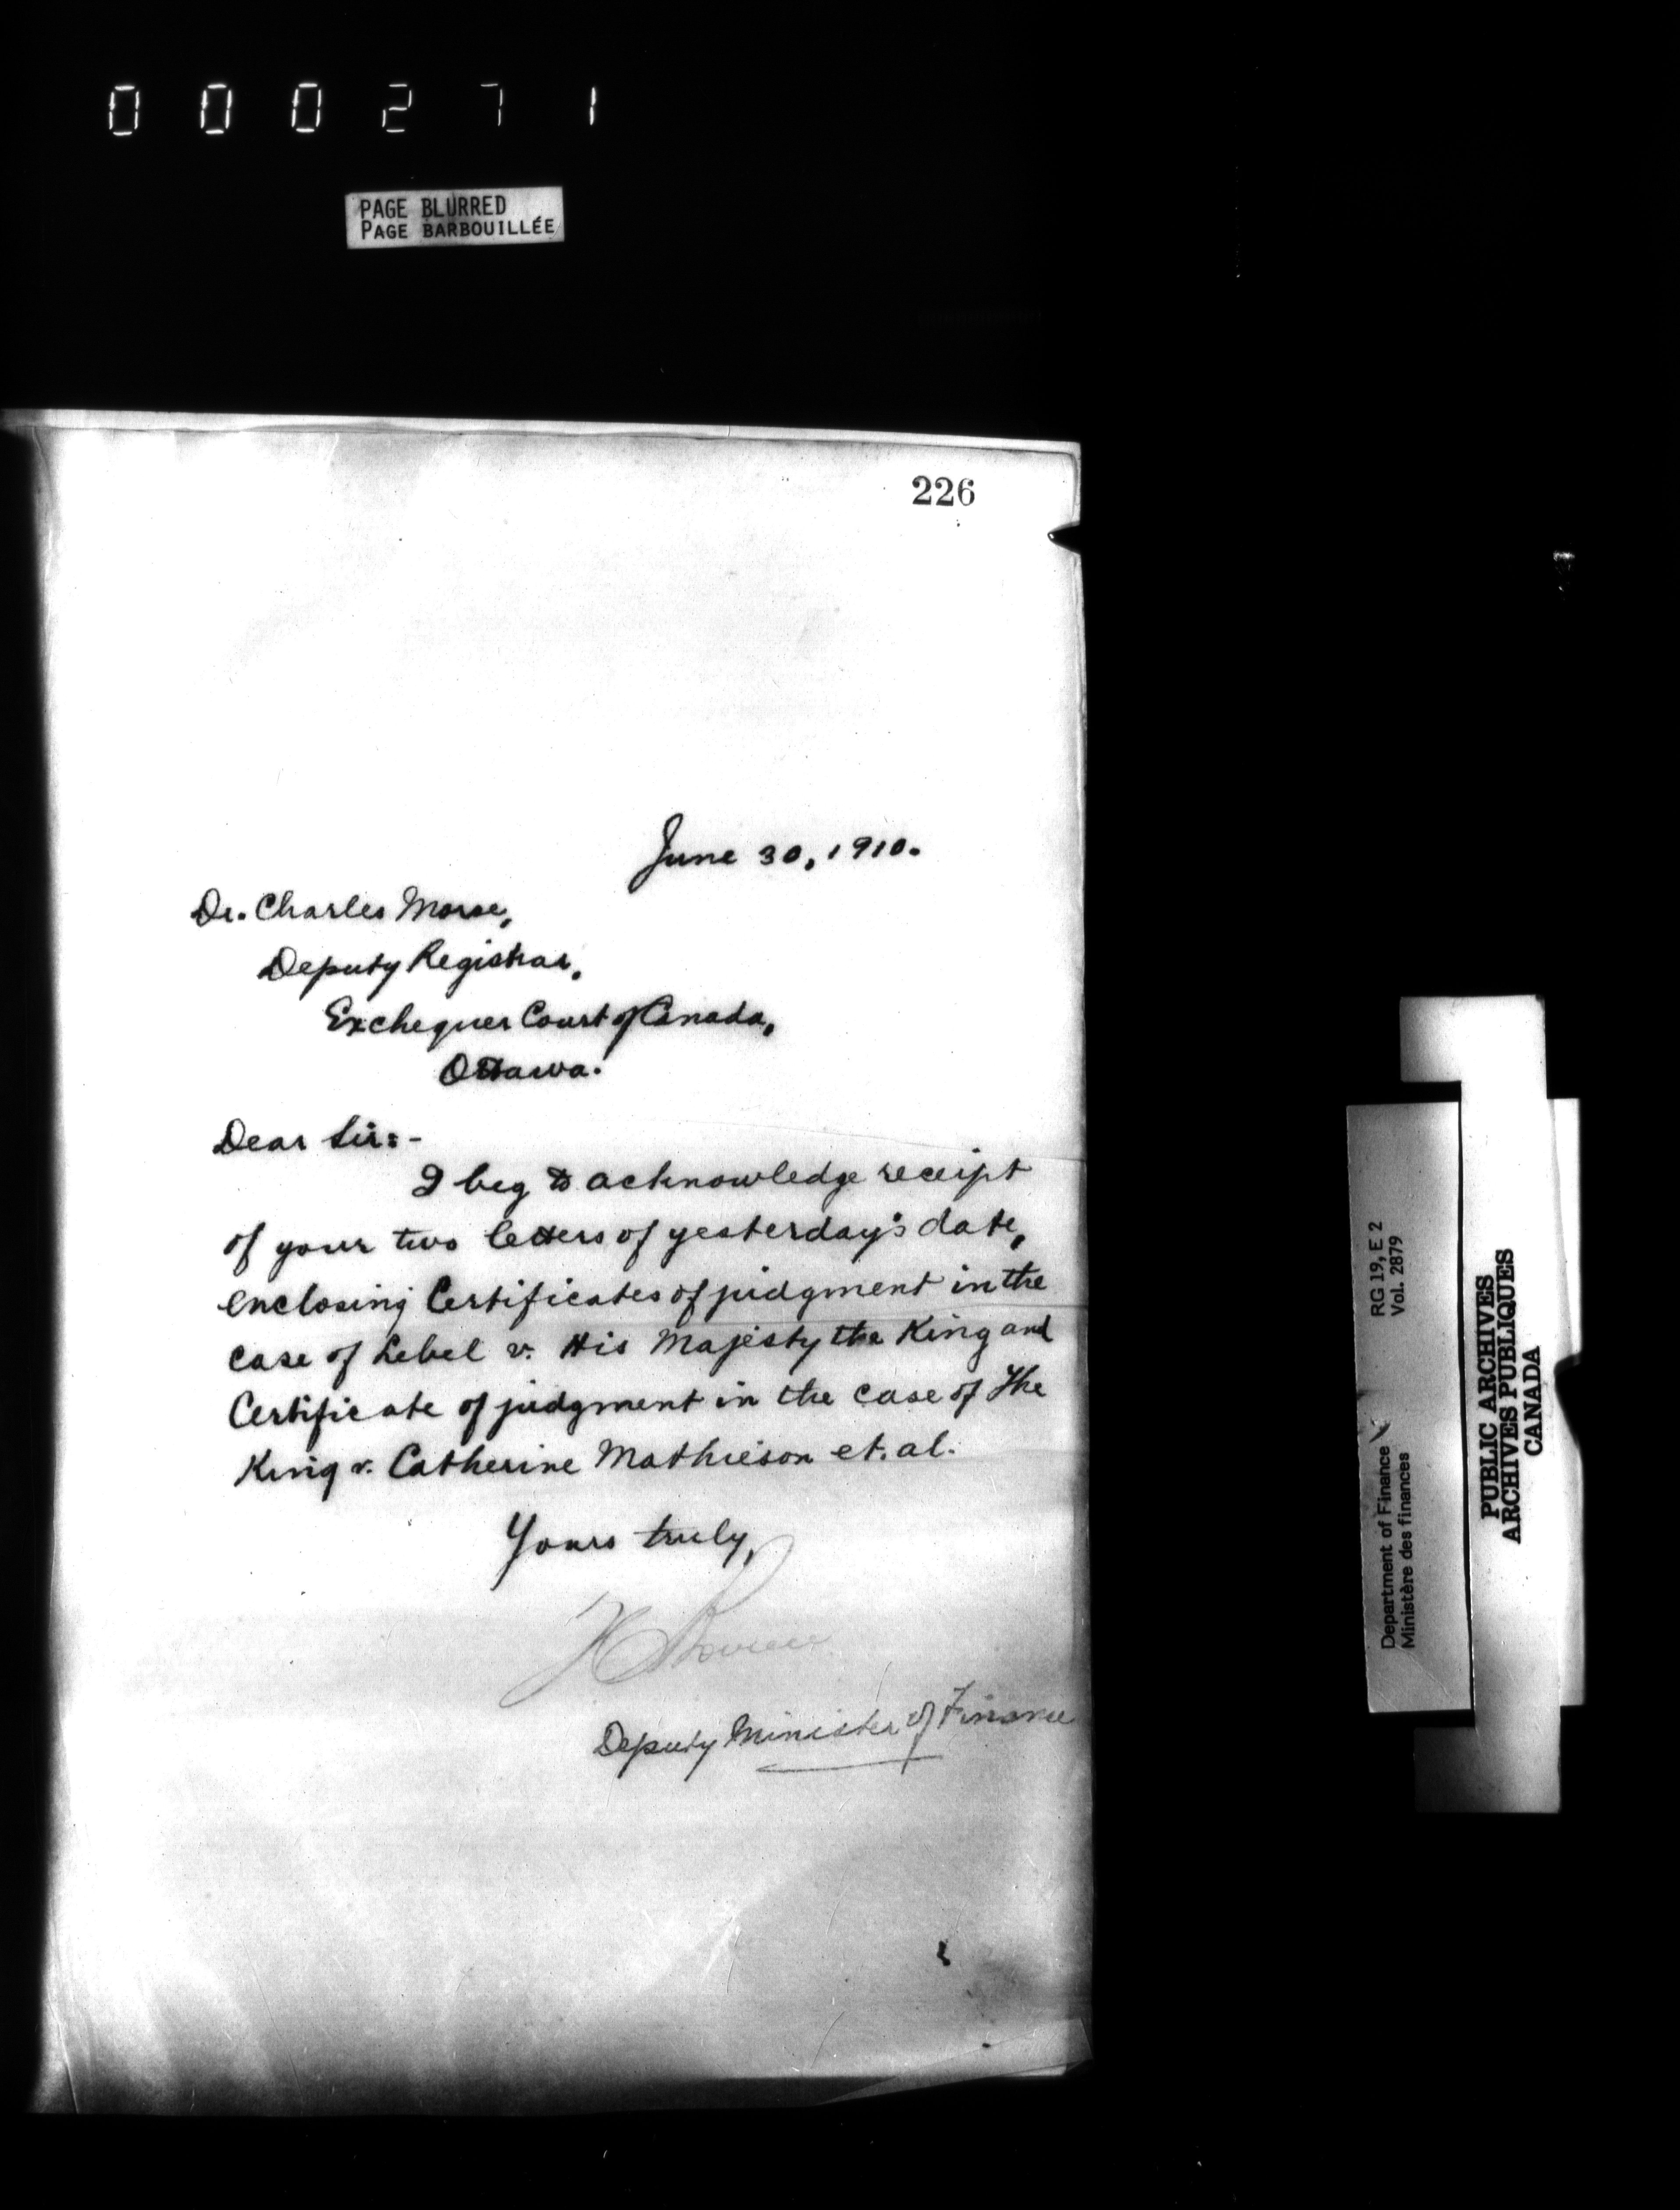 000271
PAGE BLURRED
PAGE BARBOUILLÉE
226
June 30, 1910.
Dr. Charles Morse,
Deputy Registrar,
Exchequer Court of Canada,
Ottawa.
Dear Sir:-
I beg to acknowledge receipt
of your two letters of yesterday's date,
enclosing Certificates of judgment in the
case of Lebel v. His Majesty the King and
Certificate of judgment in the case of The
King v. Catherine Mathieson et. al.
Yours truly,
Deputy Minister of Finance
Department of Finance RG 19, E 2
Ministère des finances Vol. 2879
PUBLIC ARCHIVES
ARCHIVES PUBLIQUES
CANADA